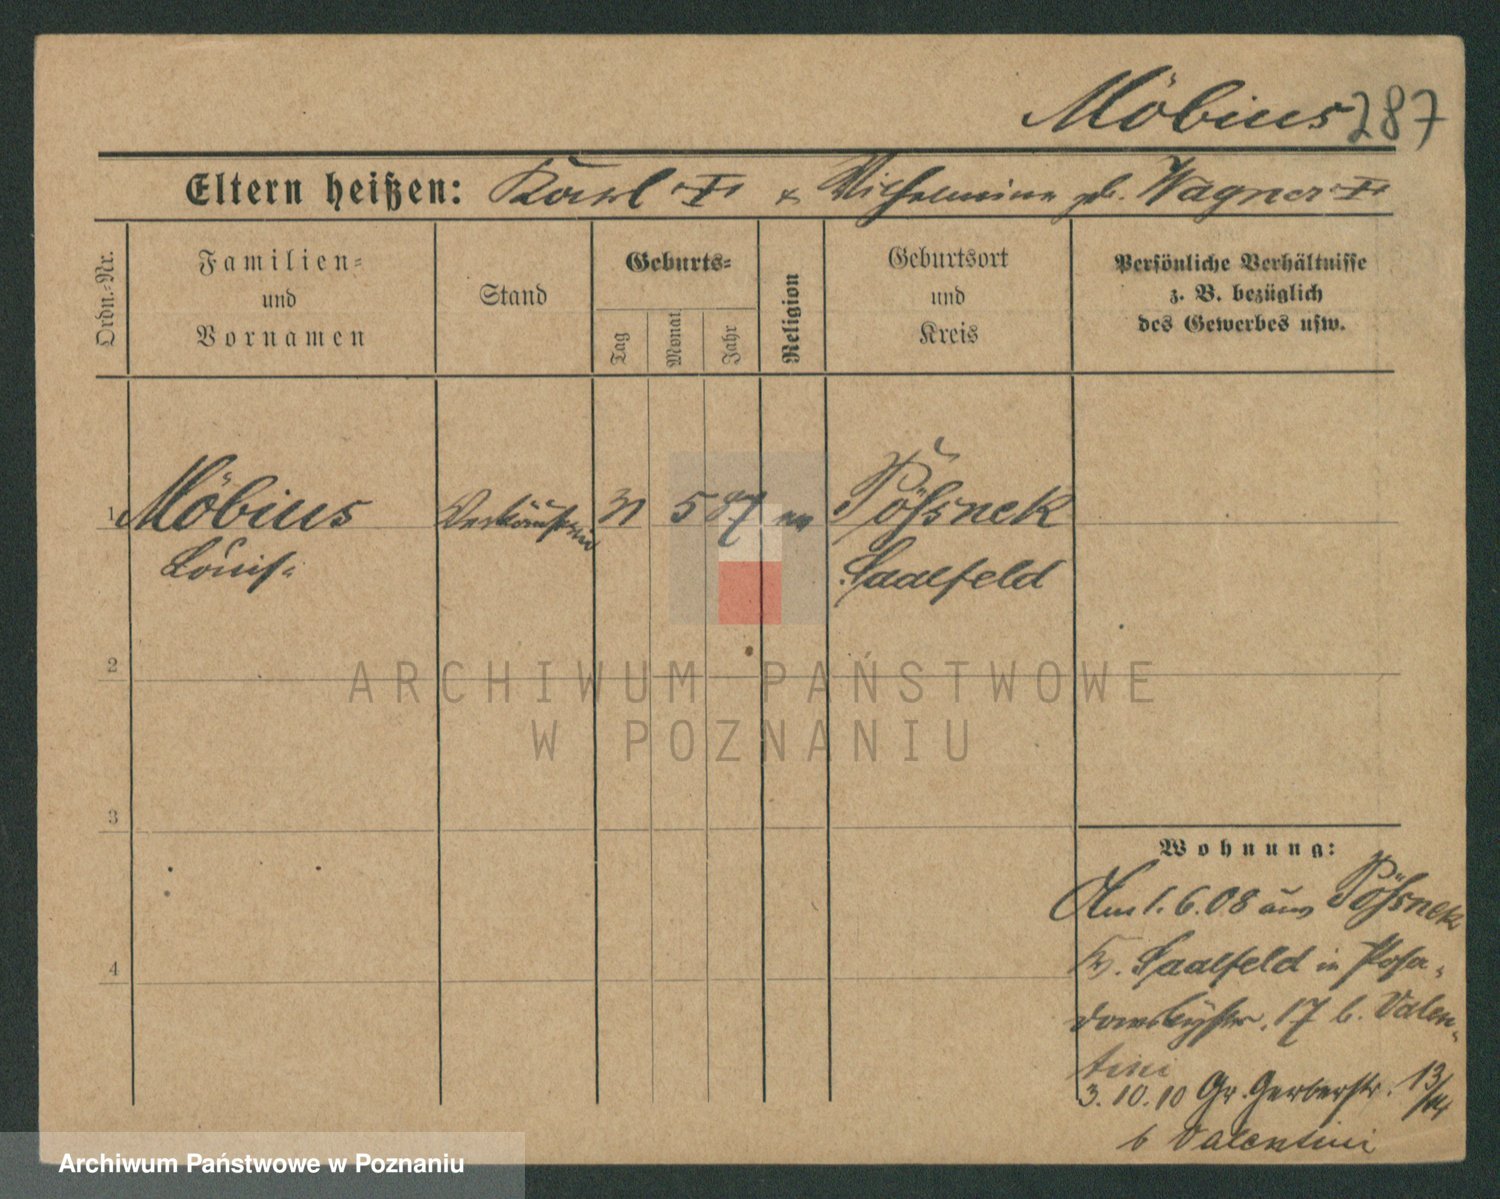 Möbius 287
Eltern heißen: Karl † & Wilhelmine gb. Wagner †
Ordn.-Nr.
Familien-
und
Vornamen
Stand
Geburts-
Tag
Monat
Jahr
Religion
Geburtsort
und
Kreis
Persönliche Verhältnisse
z. B. bezüglich
des Gewerbes usw.
1 Möbius Verkäuferin 31 5 87 ev Pößsnek
Saalfeld
2
ARCHIWUM PAŃSTWOWE
W POZNANIU
3
Wohnung:
Am 1.6.08 aus Pößsnek
Kr. Saalfeld in Posa-
dowskystr. 17 b. Valen-
tini
3.10.10 Gr. Gerberstr. 13/14
b Valentini
4
Archiwum Państwowe w Poznaniu